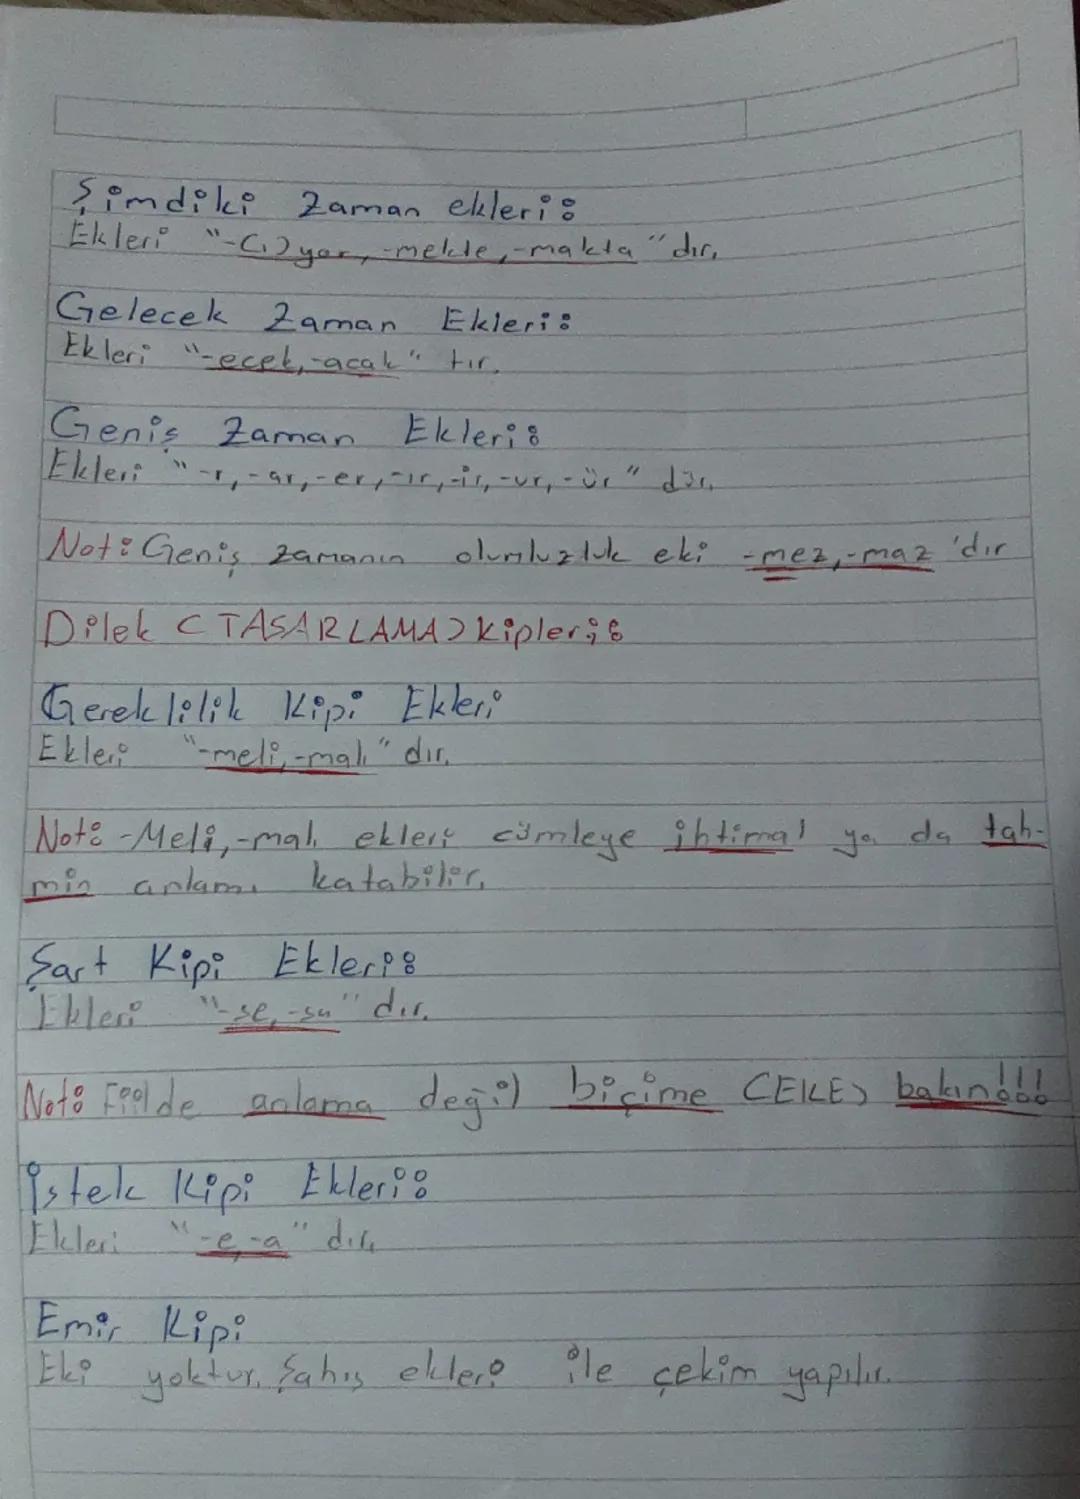 Şimdiki Zaman ekleri:
Ekleri "-(ı)yor, -mekte, -makta" dır.
Gelecek Zaman Ekleri:
Ekleri "-ecek, -acak" tır.
Geniş Zaman Ekleri:
Ekleri "-r, -ar, -er, -ır, -ir, -ur, -ür" dür.
Not: Geniş zamanın olumluzluk eki -mez, -maz 'dır
Dilek (TASARLAMA) Kipleri:
Gereklilik Kipi Ekleri
Ekleri "-meli, -malı" dır.
Not: -Meli, -malı ekleri cümleye ihtimal ya da tah-
min anlamı katabilir.
Şart Kipi Ekleri:
Ekleri "-se, -sa" dır.
Not: Fiilde anlama değil biçime (EKE) bakın!!!
İstek Kipi Ekleri:
Ekleri "-e, -a" dır.
Emir Kipi
Eki yoktur. Şahıs ekleri ile çekim yapılır.